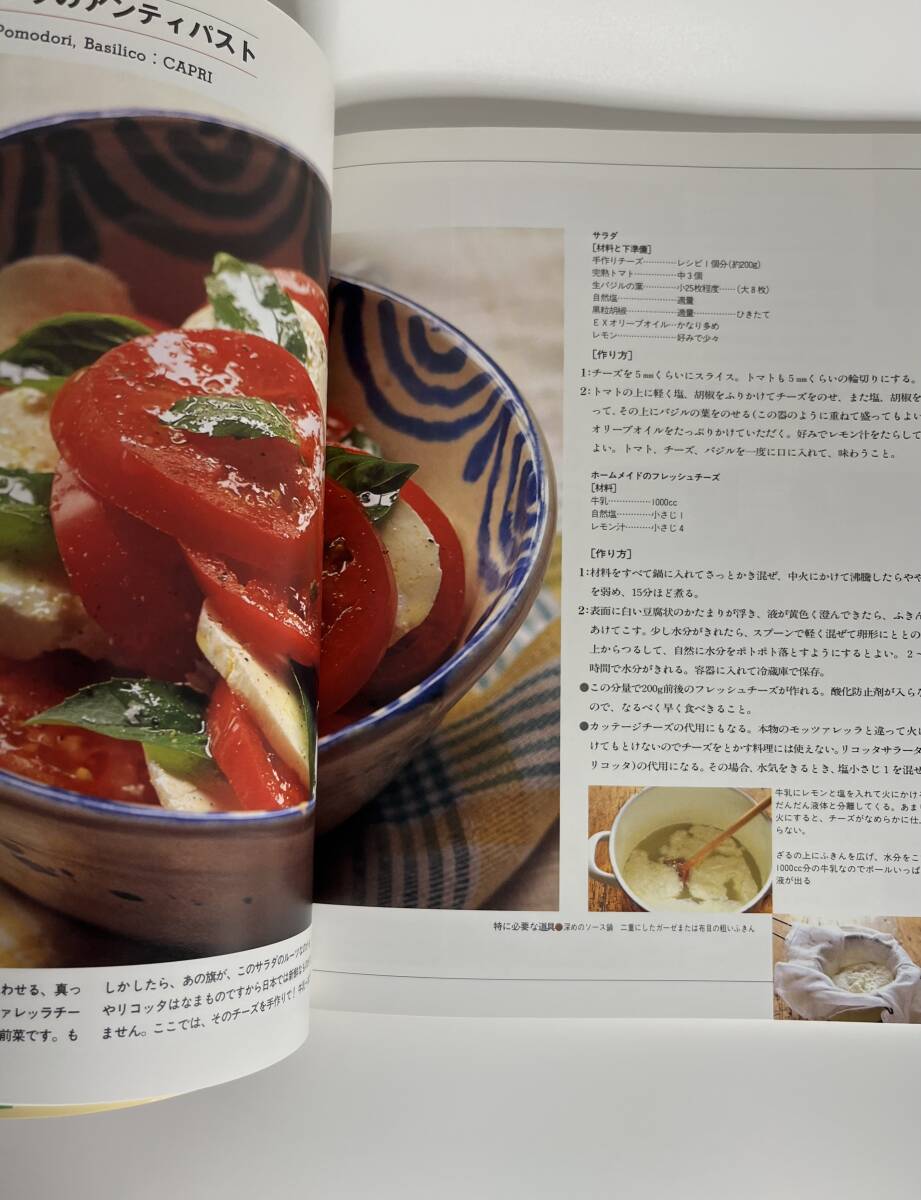 のアンティパスト
Pomodori, Basilico：CAPRI
わせる、真っ
ァレッラチー
前菜です。も
しかしたら、あの旗が、このサラダのルーツなのか
やリコッタはなまものですから日本では新鮮なもの
ません。ここでは、そのチーズを手作りで！
サラダ
[材料と下準備]
手作りチーズ…………レシピ1個分(約200g)
完熟トマト……………中3個
生バジルの葉…………小25枚程度……(大8枚)
自然塩…………………適量
黒粒胡椒………………適量……………ひきたて
EXオリーブオイル…かなり多め
レモン…………………好みで少々
[作り方]
1：チーズを5㎜くらいにスライス。トマトも5㎜くらいの輪切りにする。
2：トマトの上に軽く塩、胡椒をふりかけてチーズをのせ、また塩、胡椒を
って、その上にバジルの葉をのせる(この器のように重ねて盛ってもよい
オリーブオイルをたっぷりかけていただく。好みでレモン汁をたらして
よい。トマト、チーズ、バジルを一度に口に入れて、味わうこと。
ホームメイドのフレッシュチーズ
[材料]
牛乳……………1000cc
自然塩…………小さじ1
レモン汁………小さじ4
[作り方]
1：材料をすべて鍋に入れてさっとかき混ぜ、中火にかけて沸騰したらやや
を弱め、15分ほど煮る。
2：表面に白い豆腐状のかたまりが浮き、液が黄色く澄んできたら、ふきん
あけてこす。少し水分がきれたら、スプーンで軽く混ぜて卵形にととの
上からつるして、自然に水分をポトポト落とすようにするとよい。2〜
時間で水分がきれる。容器に入れて冷蔵庫で保存。
●この分量で200g前後のフレッシュチーズが作れる。酸化防止剤が入らな
ので、なるべく早く食べきること。
●カッテージチーズの代用にもなる。本物のモッツァレッラと違って火に
けてもとけないのでチーズをとかす料理には使えない。リコッタサラータ
リコッタ)の代用になる。その場合、水気をきるとき、塩小さじ1を混ぜ
牛乳にレモンと塩を入れて火にかける
だんだん液体と分離してくる。あまり
火にすると、チーズがなめらかに仕
らない。
ざるの上にふきんを広げ、水分をこ
1000cc分の牛乳なのでボールいっぱ
液が出る
特に必要な道具●深めのソース鍋 二重にしたガーゼまたは布目の粗いふきん